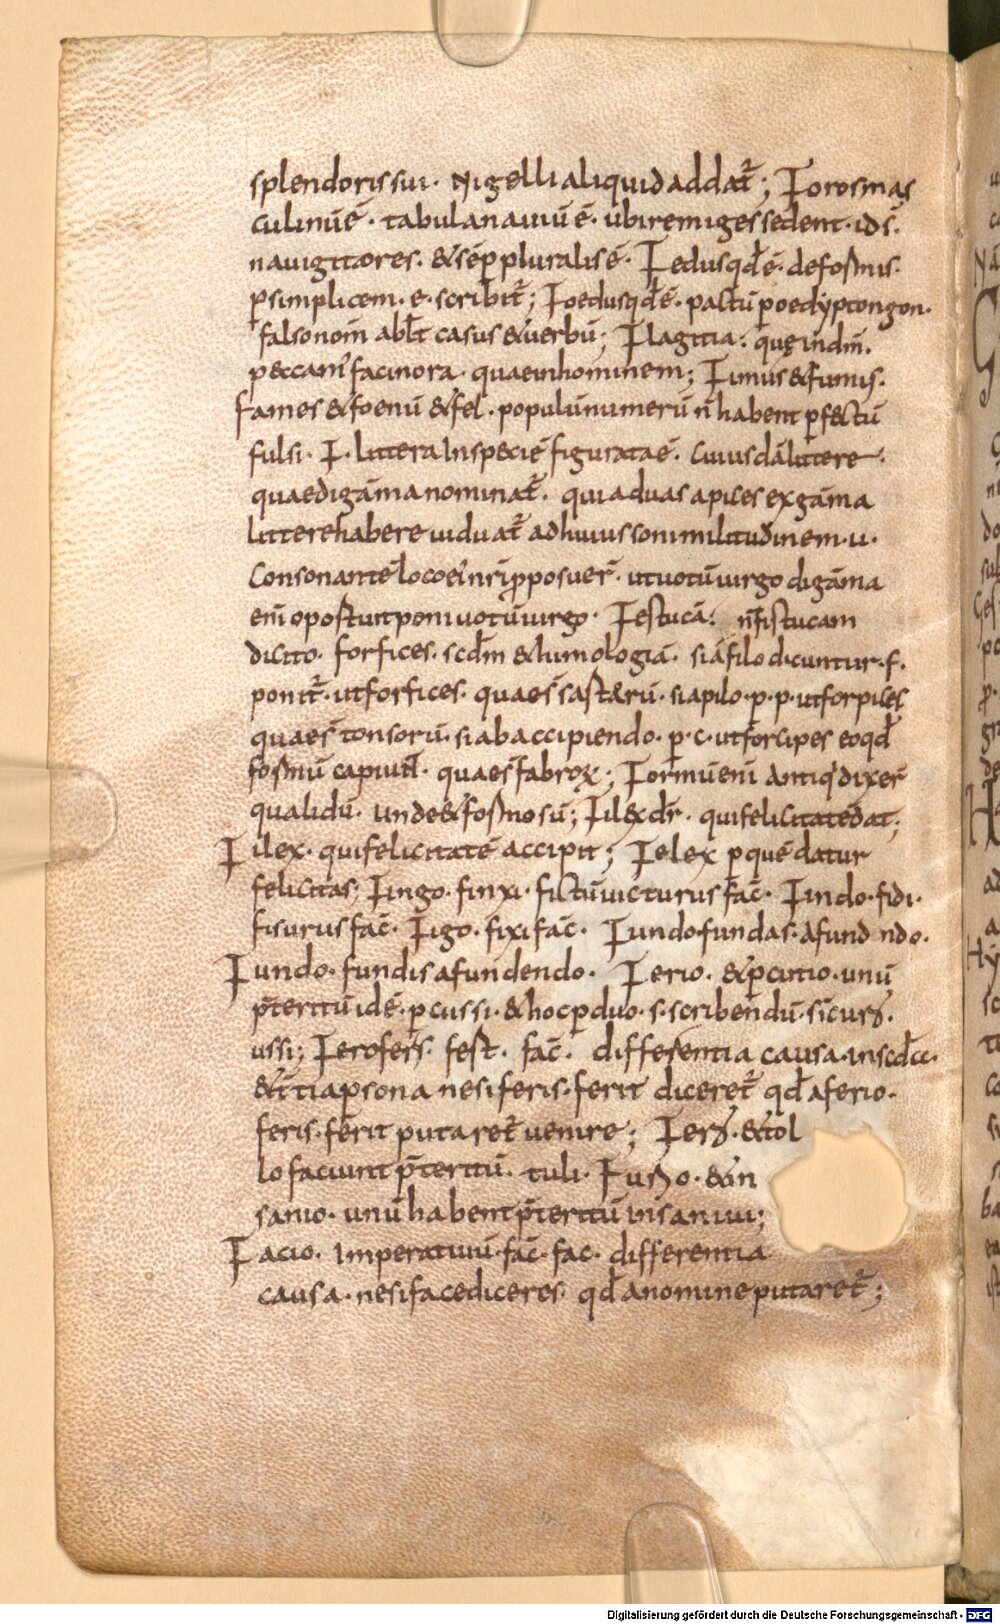 splendoris sui · Nigelli aliquid addat̄ ; Forosmas
culinū ē · tabula nauiū ē · ubi remiges sedent · id s̄ ·
nauigatores · & sēp pluralis ē · Fedus qđ ē · deformis ·
p simplicem · e · scribit̄ ; Foedus qđ ē · pactū p oedyptongon ·
falso nom̄ ablt̄ casus & uerbū ; Flagitia : quę indm̄ ·
peccant̄ facinora · quae in hominem ; Fimus & fumis ·
Fames & foenū & fel · populū numerū n̄ habent pfectū
fulsi · F · littera In specie figurata ē · Cuiusdā littere ·
quae digāma nominat̄ · quia duas apices ex gāma
littere habere uiduat̄ ad huius soni militudinem · u ·
Consonante loco ei nr̄i pposuer̄ · ut uotū uirgo digāma
eni oportuit poni uotū uirgo · Festucā : n̄ fistucam
dicito · forfices · scđm & humologiā · si a filo dicuntur · f ·
ponit̄ · ut forfices · quae s̄ sartorū · si a pilo · p · p · ut forpices
quae s̄ tonsorū · si ab accipiendo · p · c · ut forcipes eo qđ
formū capiunt · quae s̄ fabroꝝ ; Formū eni antiq dixer̄
qualidū · unde & formosū ; Filex dr̄ · qui felicitatē dat ;
Filex · qui felicitatē accipit ; Felex p quē datur
felicitas ; Fingo · finxi · fictū uicturus fac̄ · Findo · fidi ·
fisurus fac̄ · Figo · fixi fac̄ · Fundo fundas · A fund ndo ·
Fundo · fundis a fundendo · Ferio · & pcutio · unū
p̄teritū idē · pcussi · & hoc p duo · s · scribendū · sic ur& ·
ussi ; Fero fers · fert · fac̄ · differentia causa · in scđa ·
& tia psona ne si feris · ferit diceret̄ qđ a ferio ·
feris · ferit putaret̄ uenire ; Fer& · & tol
lo faciunt p̄teritū · tuli · Furo · & in
sanio · unū habent p̄teritū insaniui ;
Facio · Imperatiuū · fac̄ · fac · differentia
causa · ne si face diceres · qđ a nomine putaret̄ ;
Digitalisierung gefördert durch die Deutsche Forschungsgemeinschaft - DFG